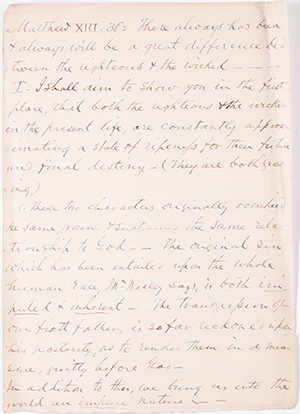 Matthew XIII. 38= There always has been
& always will be, a great difference be=
tween the righteous & the wicked — — —
I. I shall aim to show you in the first
place, that both the righteous & the wicked
in the present life, are constantly approx=
imating a state of ripeness for their future
and final destiny — (They are both grow
ing)
1. These two characters originally occupied
the same ground & sustained the same rela-
tionship to God — — The original Sin
which has been entailed upon the whole
human Race, Mr Wesley says, is both im
puted & inherent — The transgression of
our first father, is so far reckoned upon
his posterity, as to render them in a mea=
sure, guilty before God—
In addition to this, we bring us into the
world an impure nature — —